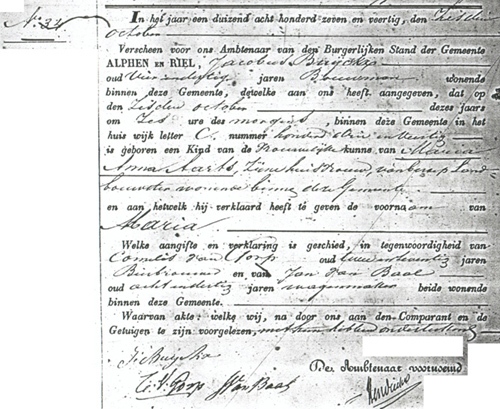 No. 34
In het jaar een duizend acht honderd zeven en veertig, den Zesden
october
Verscheen voor ons Ambtenaar van den Burgerlijken Stand der Gemeente
ALPHEN EN RIEL, Jacobus
oud Vier en dertig jaren Bouwman wonende
binnen deze Gemeente, dewelke aan ons heeft aangegeven, dat op
den Zesden october dezes jaars
om Zes ure des morgens, binnen deze Gemeente in het
huis wijk letter C. nummer honderd en veertig
is geboren een Kind van de Vrouwelijke kunne van Maria
Anna Aarts, Zijne huisvrouw, van beroep Land-
bouwster wonende binnen deze Gemeente
en aan hetwelk hij verklaard heeft te geven de voornaam van
Maria
Welke aangifte en verklaring is geschied, in tegenwoordigheid van
Cornelis van Gorp oud en twintig jaren
en van Jan van Baal
oud acht en dertig jaren wagenmaker beide wonende
binnen deze Gemeente.
Waarvan akte: welke wij, na door ons aan den Comparant en de
Getuigen te zijn voorgelezen, met hun hebben onderteekend
C. V. Gorp J van Baal
Des Ambtenaar voornoemd